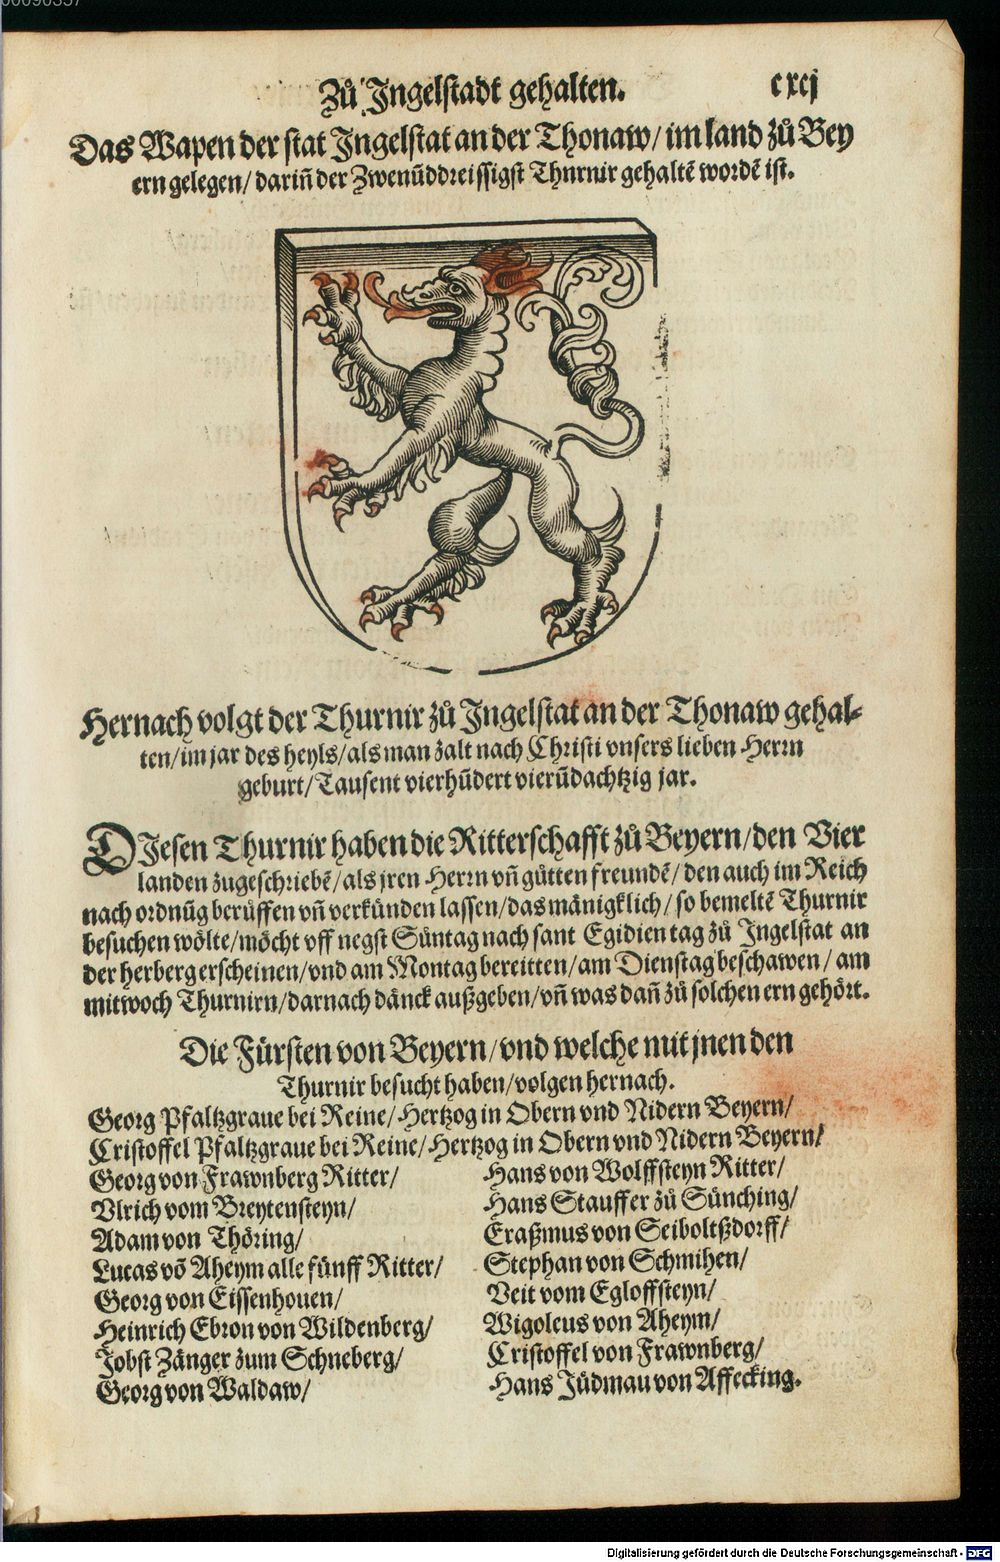 00090357
Zů Jngelstadt gehalten.
cxcj
Das Wapen der stat Jngelstat an der Thonaw/ im land zů Bey
ern gelegen/ dariñ der Zwenũddreissigst Thnrnir gehaltẽ wordẽ ist.
Hernach volgt der Thurnir zů Jngelstat an der Thonaw gehal-
ten/ im jar des heyls/ als man zalt nach Christi vnsers lieben Herrn
geburt/ Tausent vierhũdert vierũdachtzig jar.
DJesen Thurnir haben die Ritterschafft zů Beyern/ den Vier
landen zugeschriebẽ/ als jren Herrn vñ gůtten freundẽ/ den auch im Reich
nach ordnũg berůffen vñ verkünden lassen/ das mänigklich/ so bemeltẽ Thurnir
besuchen wölte/ möcht vff negst Süntag nach sant Egidien tag zů Jngelstat an
der herberg erscheinen/ vnd am Montag bereitten/ am Dienstag beschawen/ am
mitwoch Thurnirn/ darnach dänck außgeben/ vñ was dañ zů solchen ern gehört.
Die Fürsten von Beyern/ vnd welche mit jnen den
Thurnir besucht haben/ volgen hernach.
Georg Pfaltzgraue bei Reine/ Hertzog in Obern vnd Nidern Beyern/
Cristoffel Pfaltzgraue bei Reine/ Hertzog in Obern vnd Nidern Beyern/
Georg von Frawnberg Ritter/
Vlrich vom Breytensteyn/
Adam von Thöring/
Lucas võ Aheym alle fünff Ritter/
Georg von Eissenhouen/
Heinrich Ebron von Wildenberg/
Jobst Zänger zum Schneberg/
Georg von Waldaw/
Hans von Wolffsteyn Ritter/
Hans Stauffer zů Sünching/
Eraßmus von Seiboltßdorff/
Stephan von Schmihen/
Veit vom Egloffsteyn/
Wigoleus von Aheym/
Cristoffel von Frawnberg/
Hans Jüdmau von Affecking.
Digitalisierung gefördert durch die Deutsche Forschungsgemeinschaft - DFG